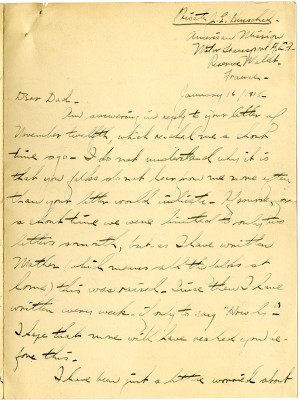 Private J. E.
American Mission
Motor Transport A.E.F.
Reserve Mallet
France
January 16, 1918
Dear Dad.
Am answering in reply to your letter of
November twelfth, which reached me a short
time ago - I do not understand why it is
that you folks do not hear from me more often
than your letter would indicate. Of course, for
a short time we were limited to only two
letters a month, but as I have written
Mother, (which means all the folks at
home) this was raised. Since then I have
written every week, if only to say "Howdy"
I hope that more will have reached you be-
fore this.
I have been just a little worried about